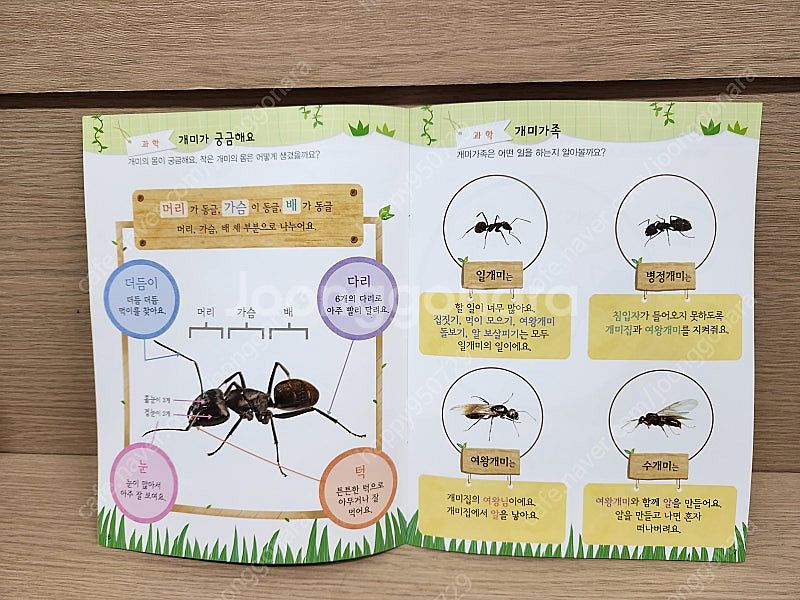 과학 개미가 궁금해요
개미의 몸이 궁금해요. 작은 개미의 몸은 어떻게 생겼을까요?
머리가 동글, 가슴이 동글, 배가 동글
머리, 가슴, 배 세 부분으로 나누어요.
더듬이
더듬 더듬
먹이를 찾아요.
다리
6개의 다리로
아주 빨리 달려요.
머리 가슴 배
홑눈이 3개
겹눈이 2개
눈
눈이 많아서
아주 잘 보여요.
턱
튼튼한 턱으로
아무거나 잘
먹어요.
과학 개미가족
개미가족은 어떤 일을 하는지 알아볼까요?
일개미는
할 일이 너무 많아요.
집짓기, 먹이 모으기, 여왕개미
돌보기, 알 보살피기는 모두
일개미의 일이에요.
병정개미는
침입자가 들어오지 못하도록
개미집과 여왕개미를 지켜줘요.
여왕개미는
개미집의 여왕님이에요.
개미집에서 알을 낳아요.
수개미는
여왕개미와 함께 알을 만들어요.
알을 만들고 나면 혼자
떠나버려요.
Joonggonara